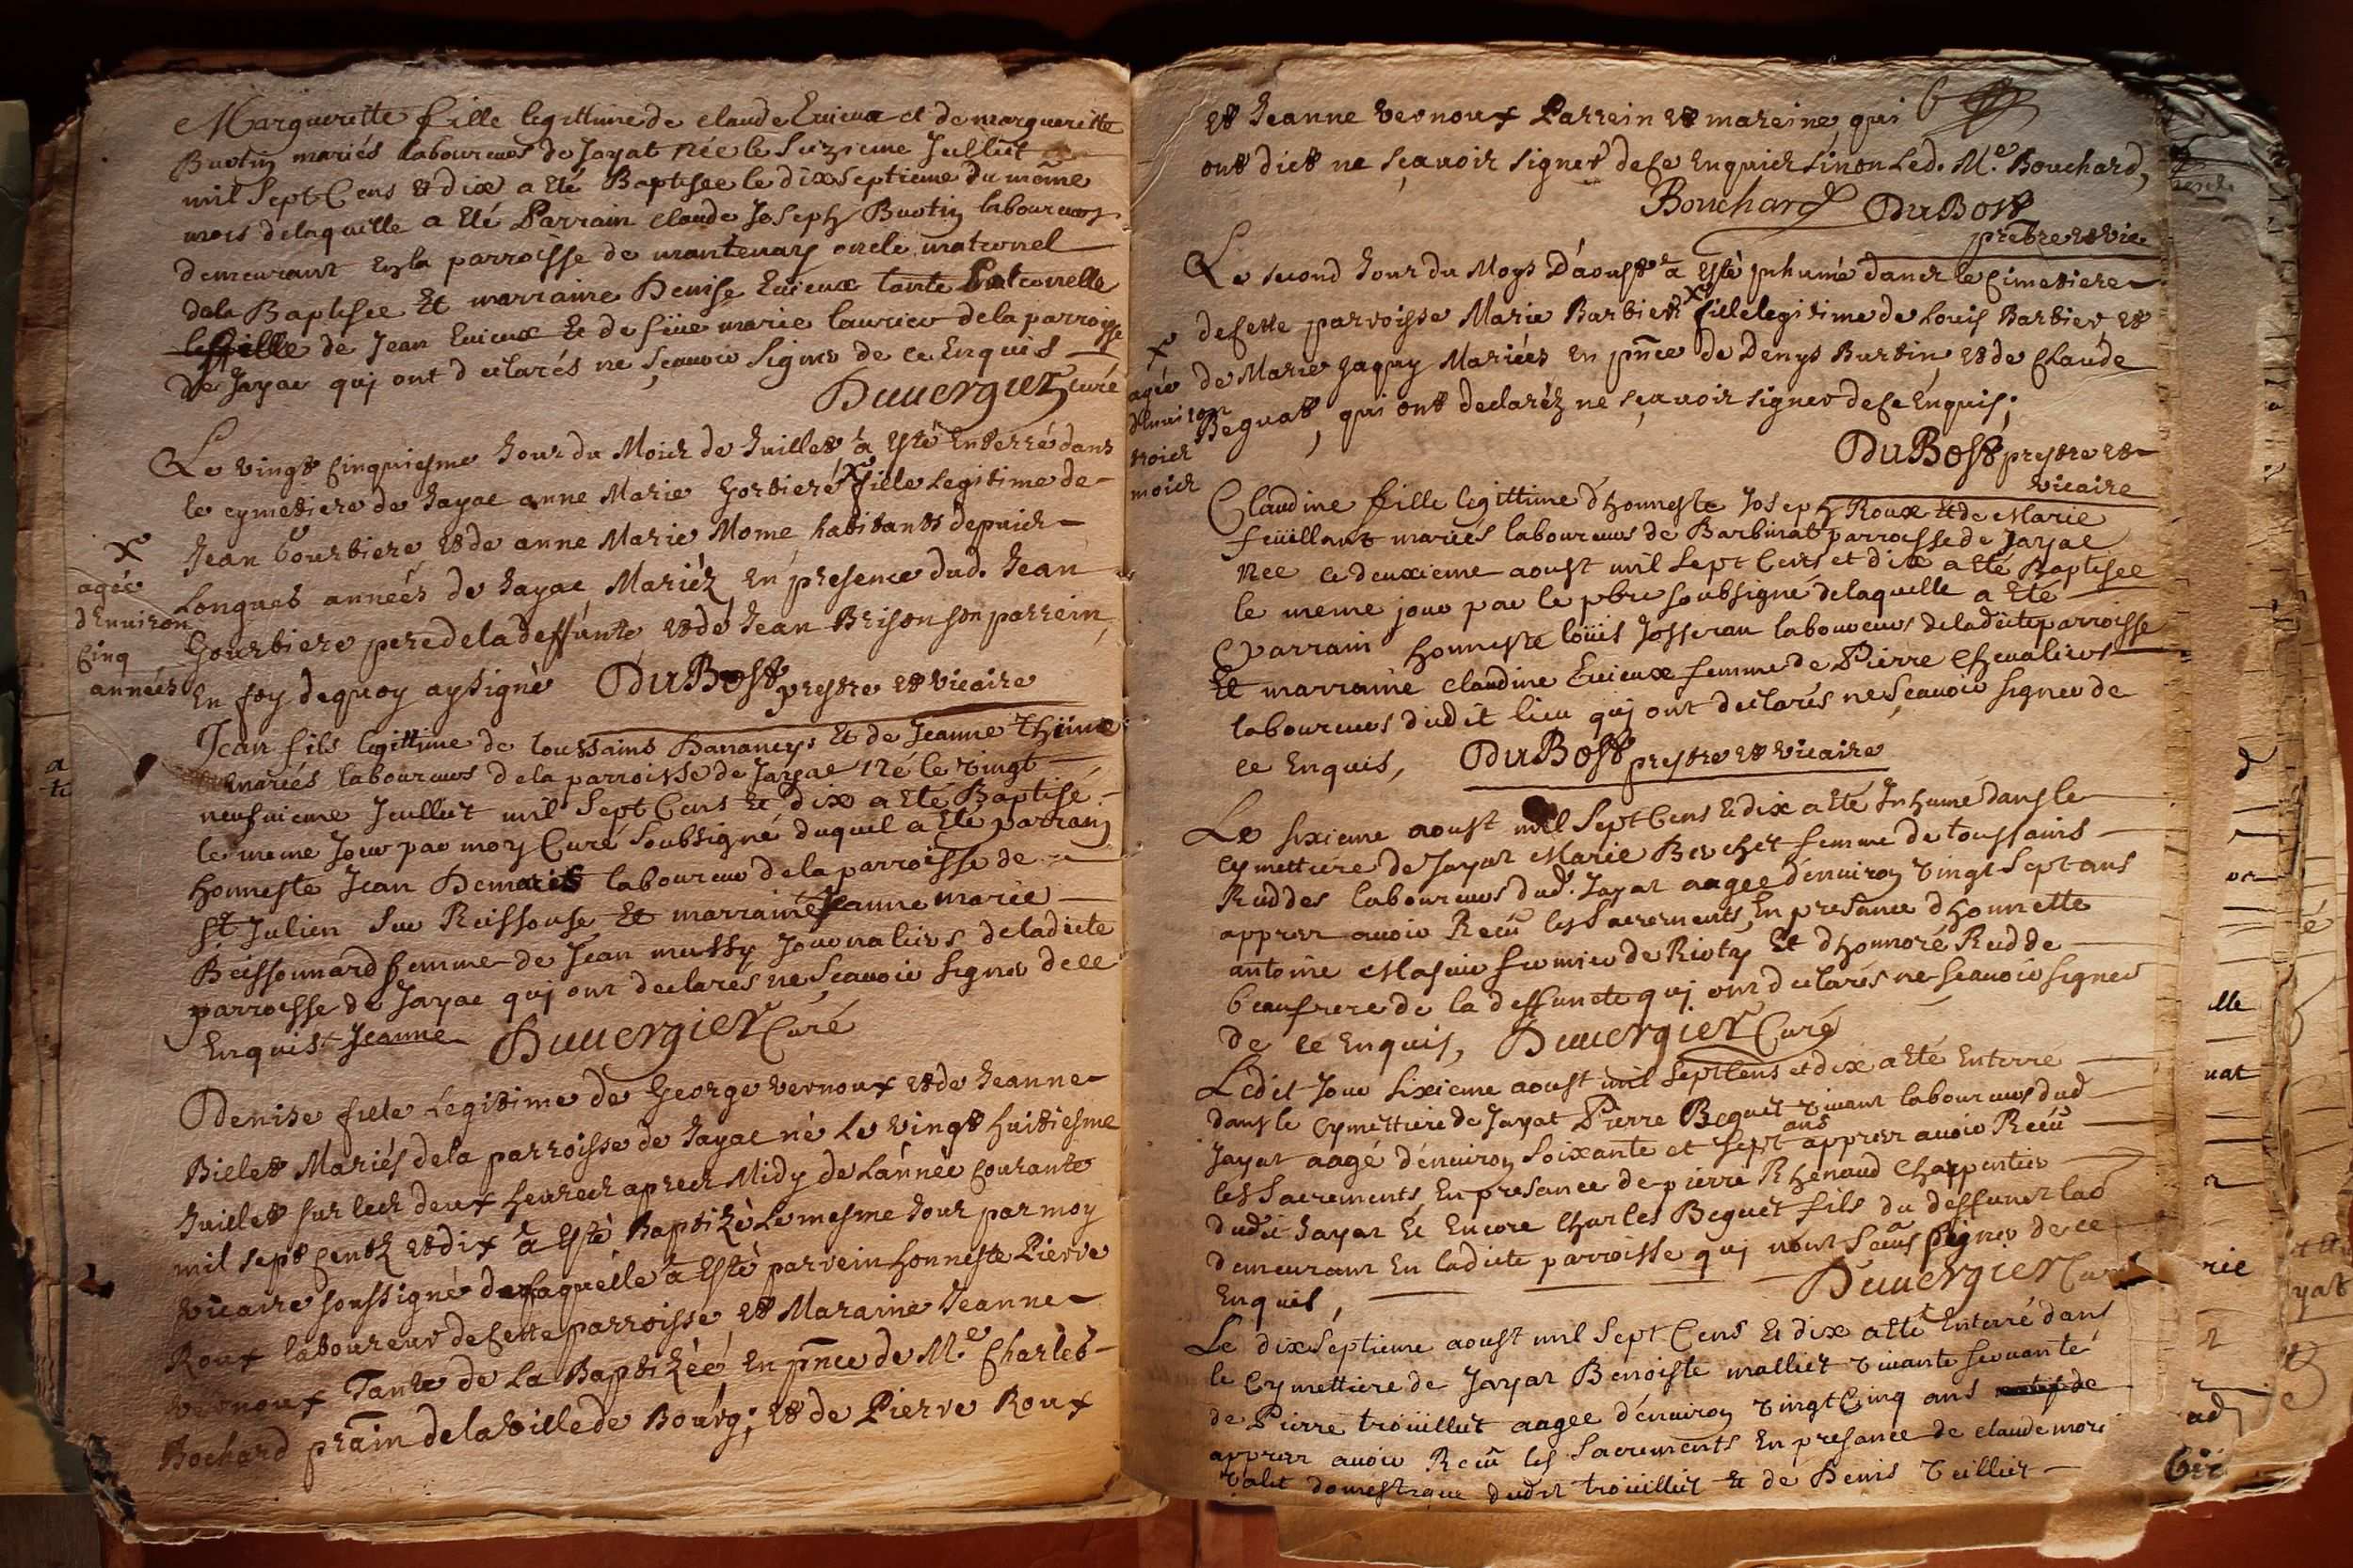 Margueritte fille legittime de claude Euieux et de marguerite
Buotin mariés laboureurs de Jayat née le seizieme Juillet
mil Sept Cens et dix a eté Baptisee le dix septieme du mesme
mois de laquelle a eté Parrain claude Joseph Buotin laboureur
demeurant en la parroisse de mantenay oncle maternel
de la Baptisee Et marraine Denise Euieux tante Paternelle
fille de Jean Euieux et de füe marie laurier de la parroisse
de Jayac quj ont déclarés ne sçauoir signer de ce Enquis
Duuergier curé
Le vingt cinquiesme Jour du Moier de Juillet à esté Enterré dans
le cymetiere de Jayac anne Marie Gorbiere x fille Legitime de
Jean Gourbiere et de anne Marie Mome habitants depuier
x
agée
dEnuiron
Cinq
années
Longues années de Jayac Mariéz En presence dud. Jean
Gourbiere pere de la deffunte et de Jean Brison son parrein,
En foy dequoy ay signé DuBost prestre et vicaire
Jean fils legittime de toussains Dananeys et de Jeanne
mariés laboureurs de la parroisse de Jayac né le vingt
neufuieme Juillet mil Sept Cens et dix a eté Baptisé
le meme Jour par moy Curé Soubsigné duquel a eté parrain
honneste Jean laboureur de la parroisse de
St Julien Sur Reissouse Et marraine Jeanne marie
Beissonnard femme de Jean mussy Journaliers de ladicte
parroisse de Jayac quj ont declarés ne Scauoir signer de ce
Enquis Jeanne Duuergier Curé
Denise fille Legitime de George vernoux et de Jeanne
Billet Mariés de la parroisse de Jayac né Le vingt huitiesme
Juillet sur les deux heures apres Midy de Lánnée courante
mil sept centz et dix à Esté Baptizé Le mesme Jour par moy
vicaire soussigné de laquelle a Esté parrein honneste Pierre
Roux laboureur de cette parroisse et Maraine Jeanne
vernoux Tante de La Baptizée, en pnce de Me. Charles
Bochard de la ville de Bourg; et de Pierre Roux
et Jeanne vernoux Parrein et mareine, qui
ont dict ne sçauoir signer de ce Enquier sinon Led. Me. Bouchard,
Bouchard DuBost
prebre et vic
Le second Jour du Moys D'aoust à esté Inhumé dans le Cimetiere
de cette parroisse Marie Barbier x fille legitime de Louis Barbier et
x
agée
dEnuiron
troier
moier
de Marie Jaquy Mariéés En pnce de Denys Burtin, et de Claude
Beguat, qui ont declaréz ne sçauoir signer de ce Enquis;
DuBost prestre et
vicaire
Claudine fille legittime d'honneste Joseph Roux et de Marie
feüillant mariés laboureurs de Barbinat parroisse de Jayac
née le deuxieme aoust mil Sept Cens et dix a eté Baptisee
le meme jour par le pbre soubsigné de laquelle a Eté
Parrain honneste loüis Josseran laboureur de ladicte parroisse
Et marraine claudine Euieux femme de Pierre Chevaliers
laboureurs dudit lieu quj ont declarés ne Scauoir signer de
ce Enquis, DuBost prestre et vicaire
Le sixieme aoust mil Sept Cens et dix a eté Inhumé dans le
cymettiere de Jayat Marie Berchet femme de toussains
Ruddes laboureurs dud. Jayat aagee d'enuiron vingt Sept ans
apprez auoir Reçu les Sacrements, En presance d'honnette
antoine Masuir fermier de Riotay Et d'honnoré Rudde
beaufrere de la deffuncte quj ont declarés ne Scauoir signer
de ce Enquis, Duuergier Curé
Ledit Jour Sixieme aoust mil Sept Cens et dix a eté Enterre
dans le Cymettiere de Jayat Pierre Beguet viuant laboureur dud
Jayat aagé d'enuiron Soixante et Sept ans apprez auoir Reçu
les Sacrements, En presance de pierre Rhenaud Charpentier
dudt Jayat Et Encore Charles Beguet fils du deffunct lab
demeurant En ladicte parroisse quj n'ont Sceus signer de ce
Enquis, Duuergier Curé
Le dix Septieme aoust mil Sept Cens Et dix a eté Enterré dans
le Cymettiere de Jayat Benoiste malliet viuante servante
de Pierre troüillet aagee d'enuiron vingt Cinq ans
apprez auoir Reçu les Sacrements En presance de claude mori
valet domestique dudit troüillet et de Denis veillet